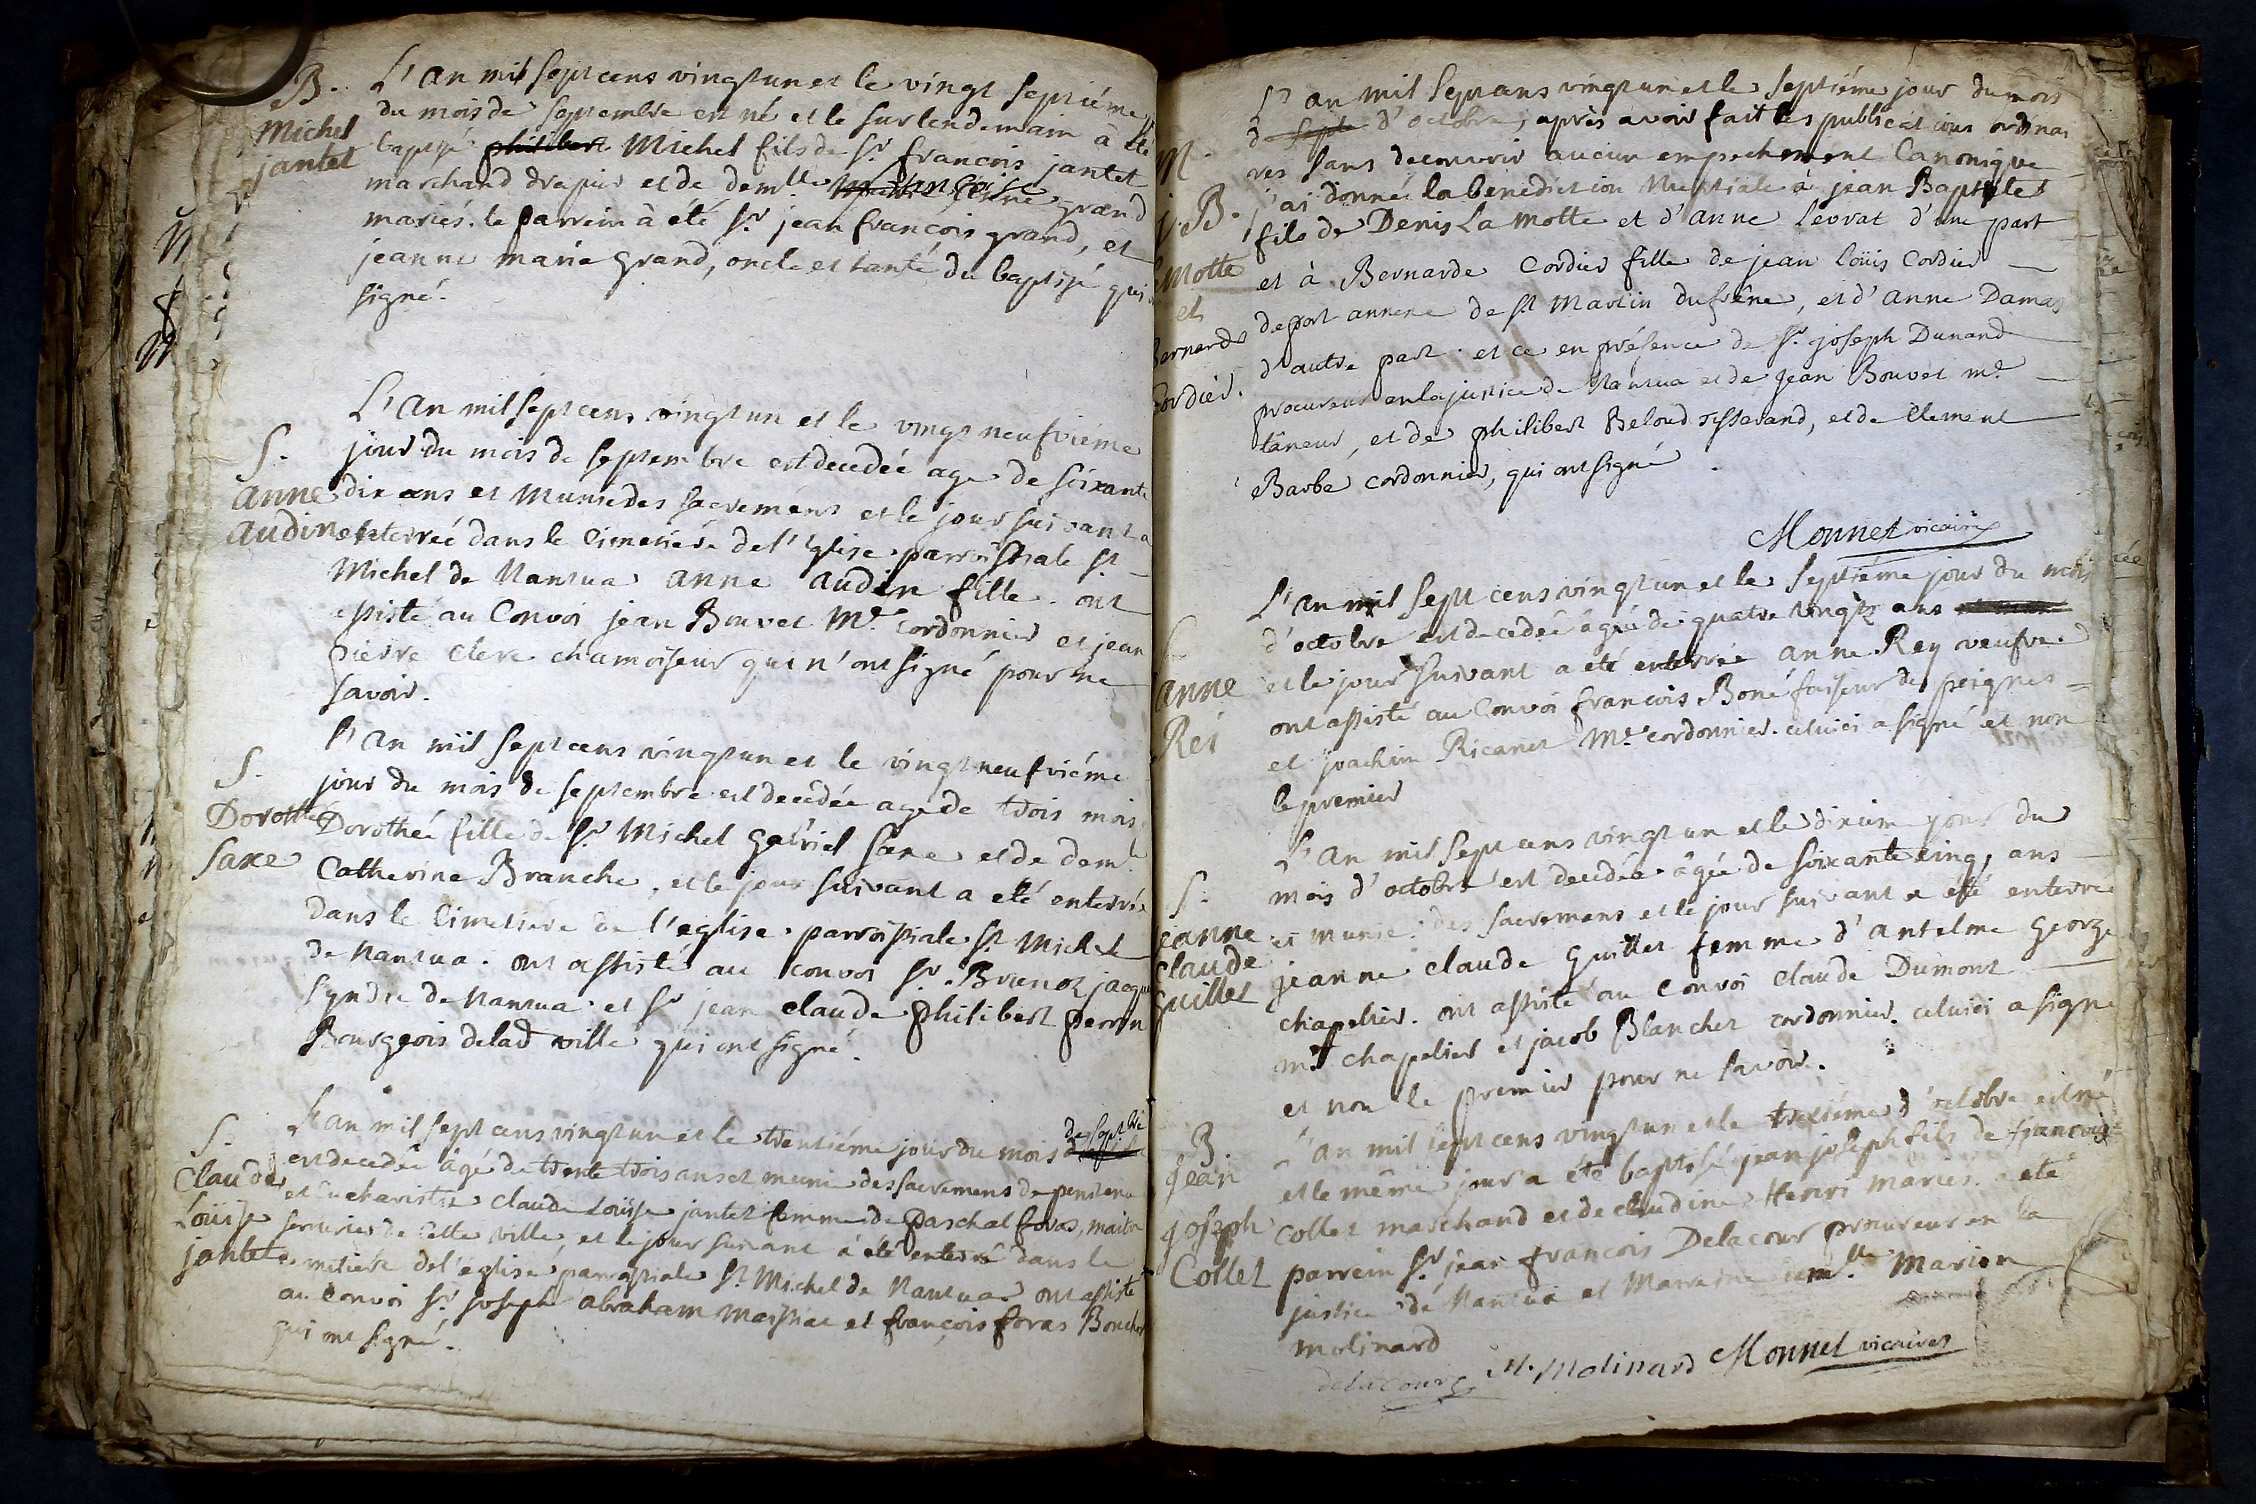 B.
Michel
jantet
L'an mil sept cens vingt un et le vingt septiéme
du mois de septembre est né et le surlendemain à été
baptisé philibert Michel fils de Sr. françois jantet
marchand drapier et de demlle grand
mariés. le parrein à été Sr. jean françois grand, et
jeanne marie grand, oncle et tante du baptisé qui
signé.
S.
anne
audin
L'an mil sept cens vingt un et le vingt neufviéme
jour du mois de septembre est decedée age de soixante
dix ans et munie des sacremens et le jour suivant a
enterrée dans le cimetiére de l'eglise parroissiale St
Michel de Nantua anne audin fille. ont
assisté au convoi jean Bouvet Me. cordonnier et jean
pierre clerc chamoiseur qui n'ont signé pour ne
savoir.
S.
Dorothée
saxe
l'an mil sept cens vingt un et le vingt neufviéme
jour du mois de septembre est decedée age de trois mois
Dorothée fille de Sr. Michel gabriel saxe et de demlle
Catherine Branche, et le jour suivant a eté enterrée
dans le Cimetiere de l'eglise parroissiale St Michel
de Nantua. ont assisté au convoi Sr. jacque
syndic de Nantua et Sr jean claude philibert perrin
Bourgeois de lad ville qui ont signé.
S.
Claude
Louise
jantet
L'an mil sept cens vingt un et le trentiéme jour du mois de septbre
est decedée âgé de trente trois ans et munie des sacremens de penitence
et eucharistie claude Louïse jantet femme de paschal foras, maitre
serrurier de cette ville, et le jour suivant à été enterré dans le
cimetiére de l'eglise parroissiale St Michel de Nantua ont assisté
au convoi Sr. joseph abraham maissiat et françois foras Boucher
qui ont signé.
M.
j. B.
La Motte
et
Bernarde
Cordier.
L'an mil sept cens vingt un et le septiéme jour du mois
d septe d'octobre, après avoir fait les publications ordinai
res sans decouvrir aucun empechement Canonique
j'ai donné la benediction Nuptiale à jean Baptiste
fils de Denis La Motte et d'anne Levrat d'une part
et à Bernarde Cordier fille de jean Loüis Cordier
de port annexe de St Martin du frêne, et d'anne Damas
d'autre part. et ce en présence de Sr. joseph Dunand
procureur en la justice de Nantua et de jean Bouvet me.
tâneur, et de philibert Beloud tisserand, et de Clement
Barbe cordonnier, qui ont signé.
Monnet vicaire
S.
anne
Rei
L'an mil sept cens vingt un et le septiéme jour du mois
d'octobre est decedée âgée de quatre vingtz ans
et le jour suivant a été enterrée anne Rey veufve
ont assisté au convoi françois Boné faiseur de peignes
et joachim Ricanet Me. cordonnier. celuici a signé et non
le premier
S.
jeanne
claude
guillet
L'an mil sept cens vingt un et le dixiem jour du
mois d'octobre est decedée âgée de soixante cinq ans
et munie des sacremens et le jour suivant a été enterrée
jeanne claude guillet femme d'antelme george
chapelier. ont assisté au Convoi claude Dumont
me. chapelier et jacob Blanchet cordonnier. celuici a signé
et non le premier pour ne savoir.
B.
jean
joseph
Collet
L'an mil sept cens vingt un et le treiziéme d'octobre est né
et le même jour a été baptisé jean joseph fils de françois
collet marchand et de claudine Henri mariés. a été
parrein Sr. jean françois Delacour procureur en la
justice de Nantua et Marreine demlle. Marion
molinard
delacour M. Molinard Monnet vicaire